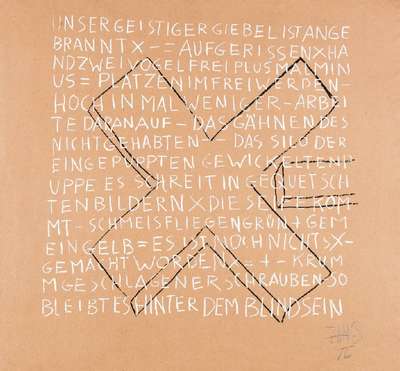 UNSERGEISTIGERGIEBELISTANGE
BRANNTX-=AUFGERISSENXHA
NDZWEIVOGELFREIPLUSMALMIN
US=PLATZENIMFREIWERDEN-
HOCHINMALWENIGER-ARBEI
TEDARANAUF-DASGÄHNENDES
NICHTGEHABTEN--DASSILODER
EINGEPUPPTENGEWICKELTENP
UPPEESSCHREITINGEQUETSCH
TENBILDERNXDIESEIFEKOM
MT-SCHMEISFLIEGENGRÜN+GEM
EINGELB=ESISTNOCHNICHTSX-
GEMACHTWORDENX-+-KRUM
MGESCHLAGENERSCHRAUBEN-SO
BLEIBTESHINTERDEMBLINDSEIN